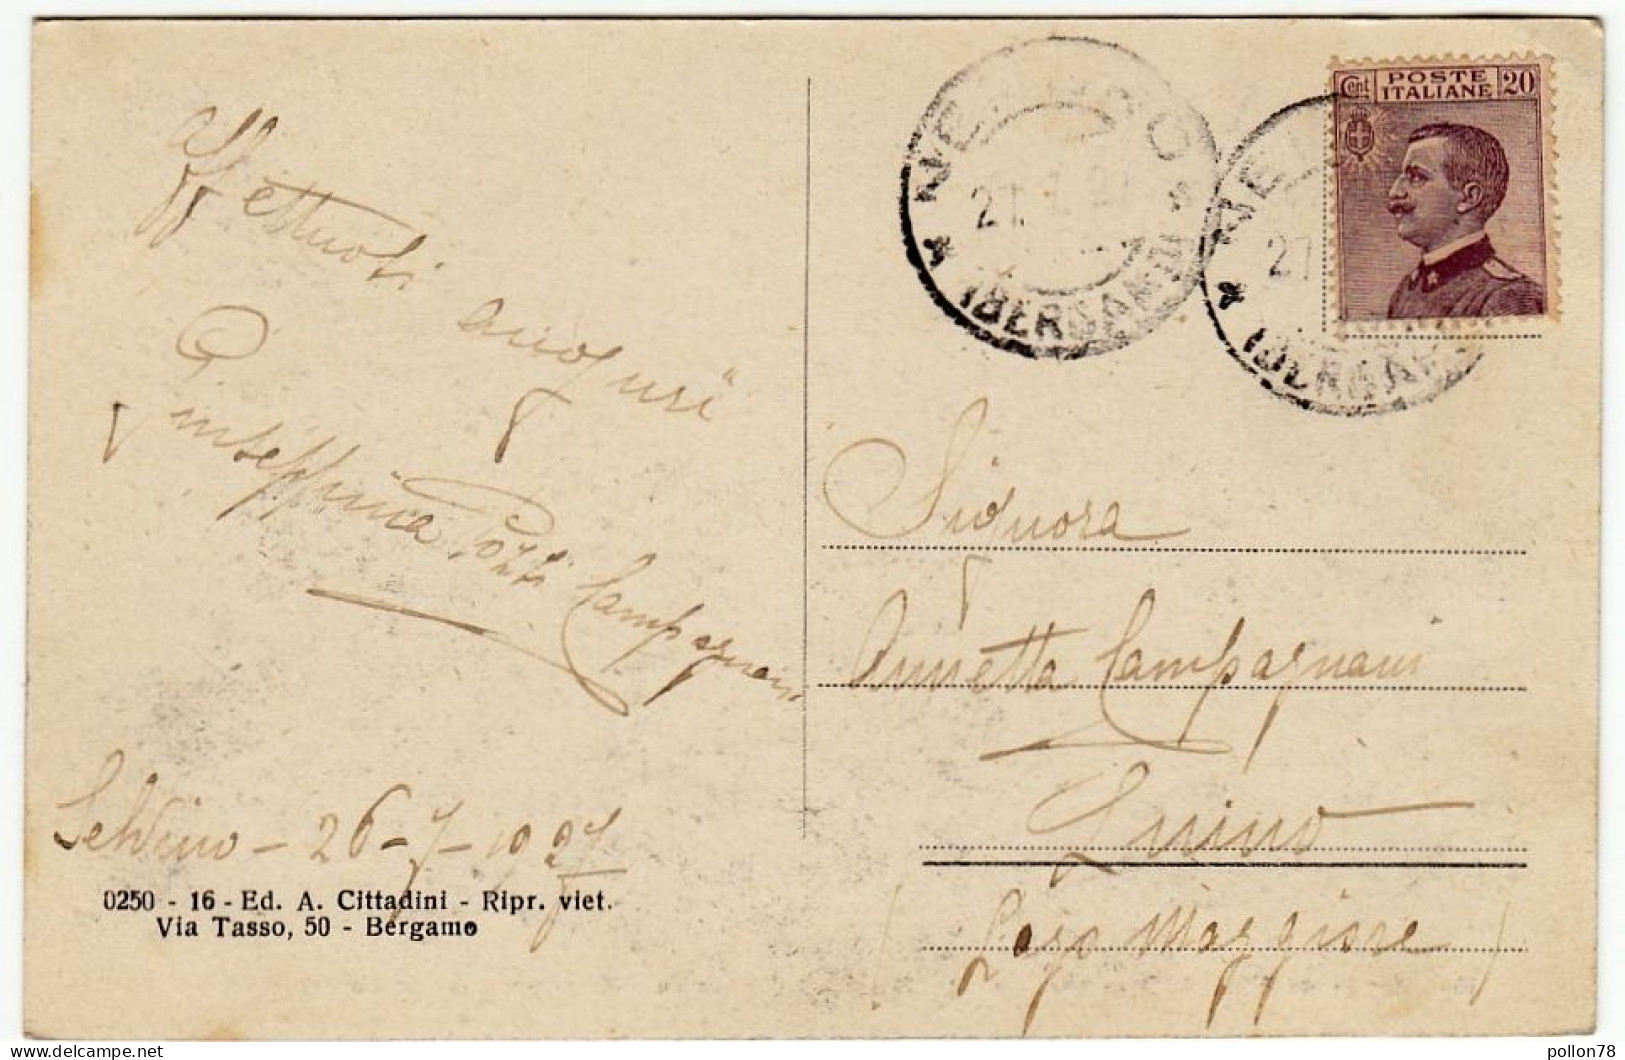 Affettuosi
auguri
Giuseppina Pozzi Campagnani
Selvino - 26-7-1927
0250 - 16 - Ed. A. Cittadini - Ripr. viet.
Via Tasso, 50 - Bergamo
(BERGAMO)
27
(BERGAMO)
27
Cent POSTE ITALIANE 20
Signora
Annetta Campagnani
Luino
(Lago Maggiore)
pollon78